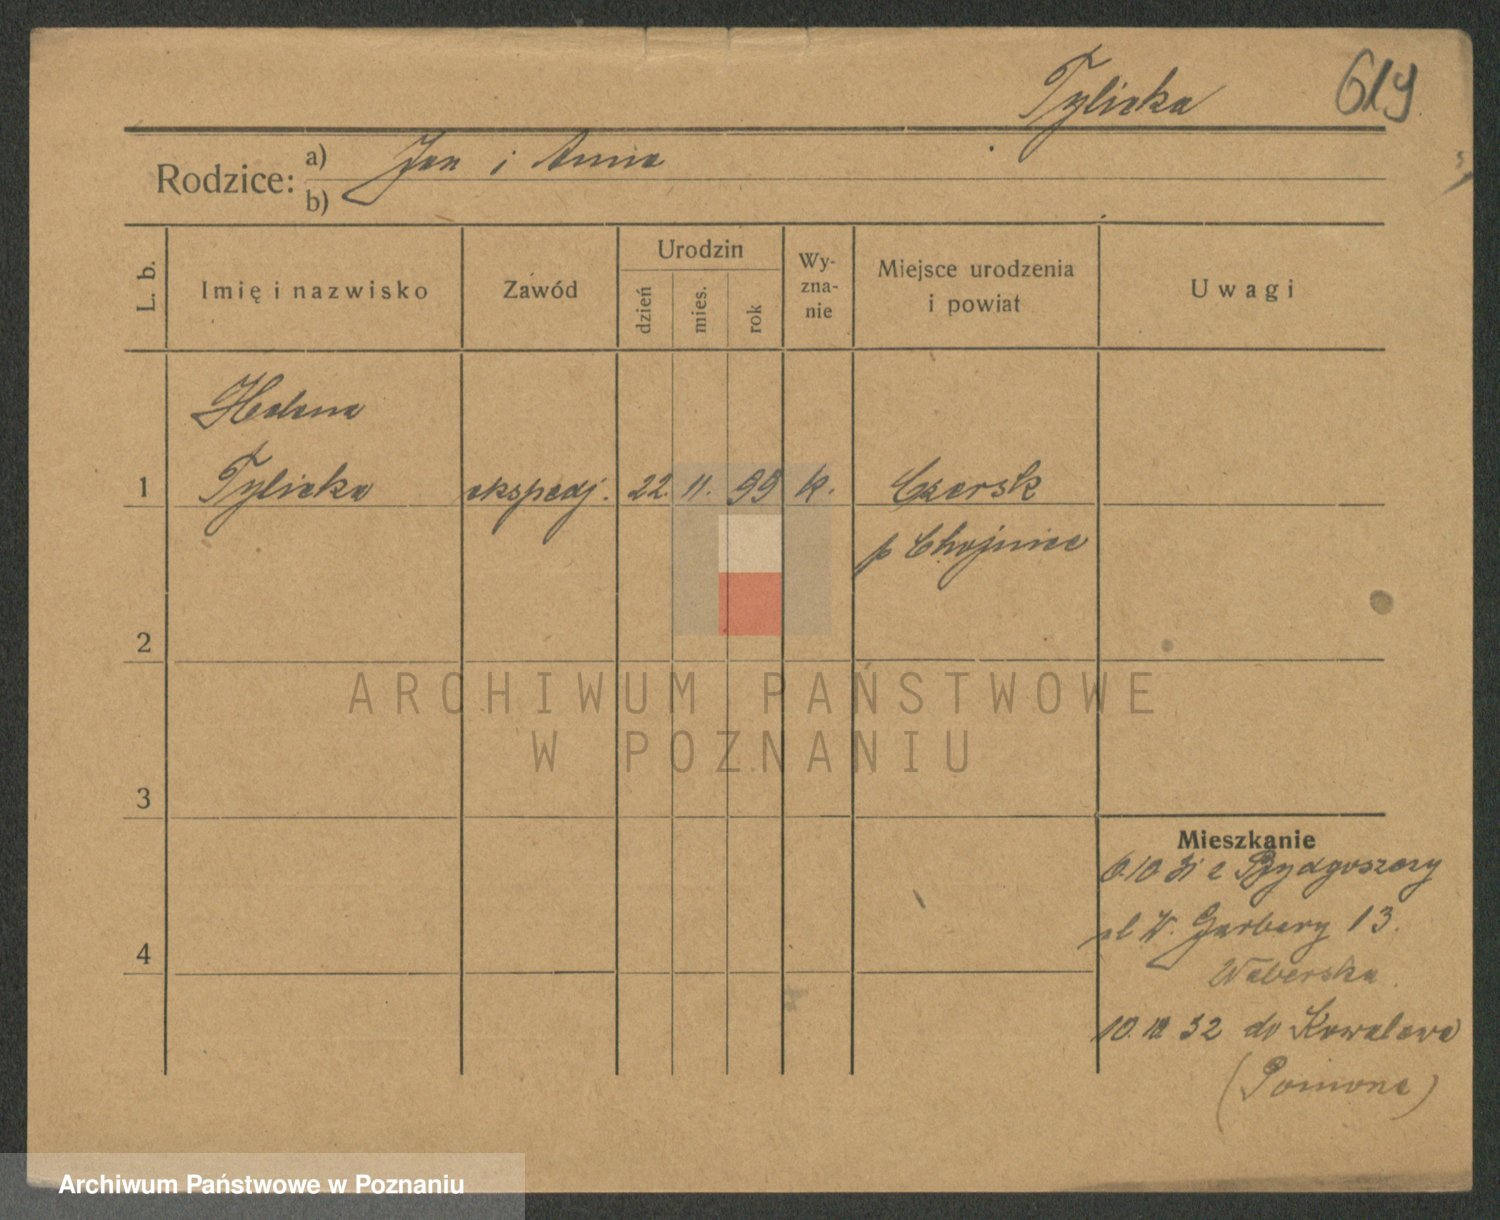 Tylicka 619
Rodzice: a) Jan i Anna
b)
L. b. Imię i nazwisko Zawód Urodzin dzień mies. rok Wy-zna-nie Miejsce urodzenia i powiat Uwagi
Helena
1 Tylicka ekspedj. 22. 11. 99 k. Czersk
p Chojnice
2
ARCHIWUM PAŃSTWOWE
W POZNANIU
3
Mieszkanie
6.10 31 z Bydgoszczy
ul W. Garbary 13.
4
Weberska.
10.10.32 do Kowalewa
(Pomorze)
Archiwum Państwowe w Poznaniu